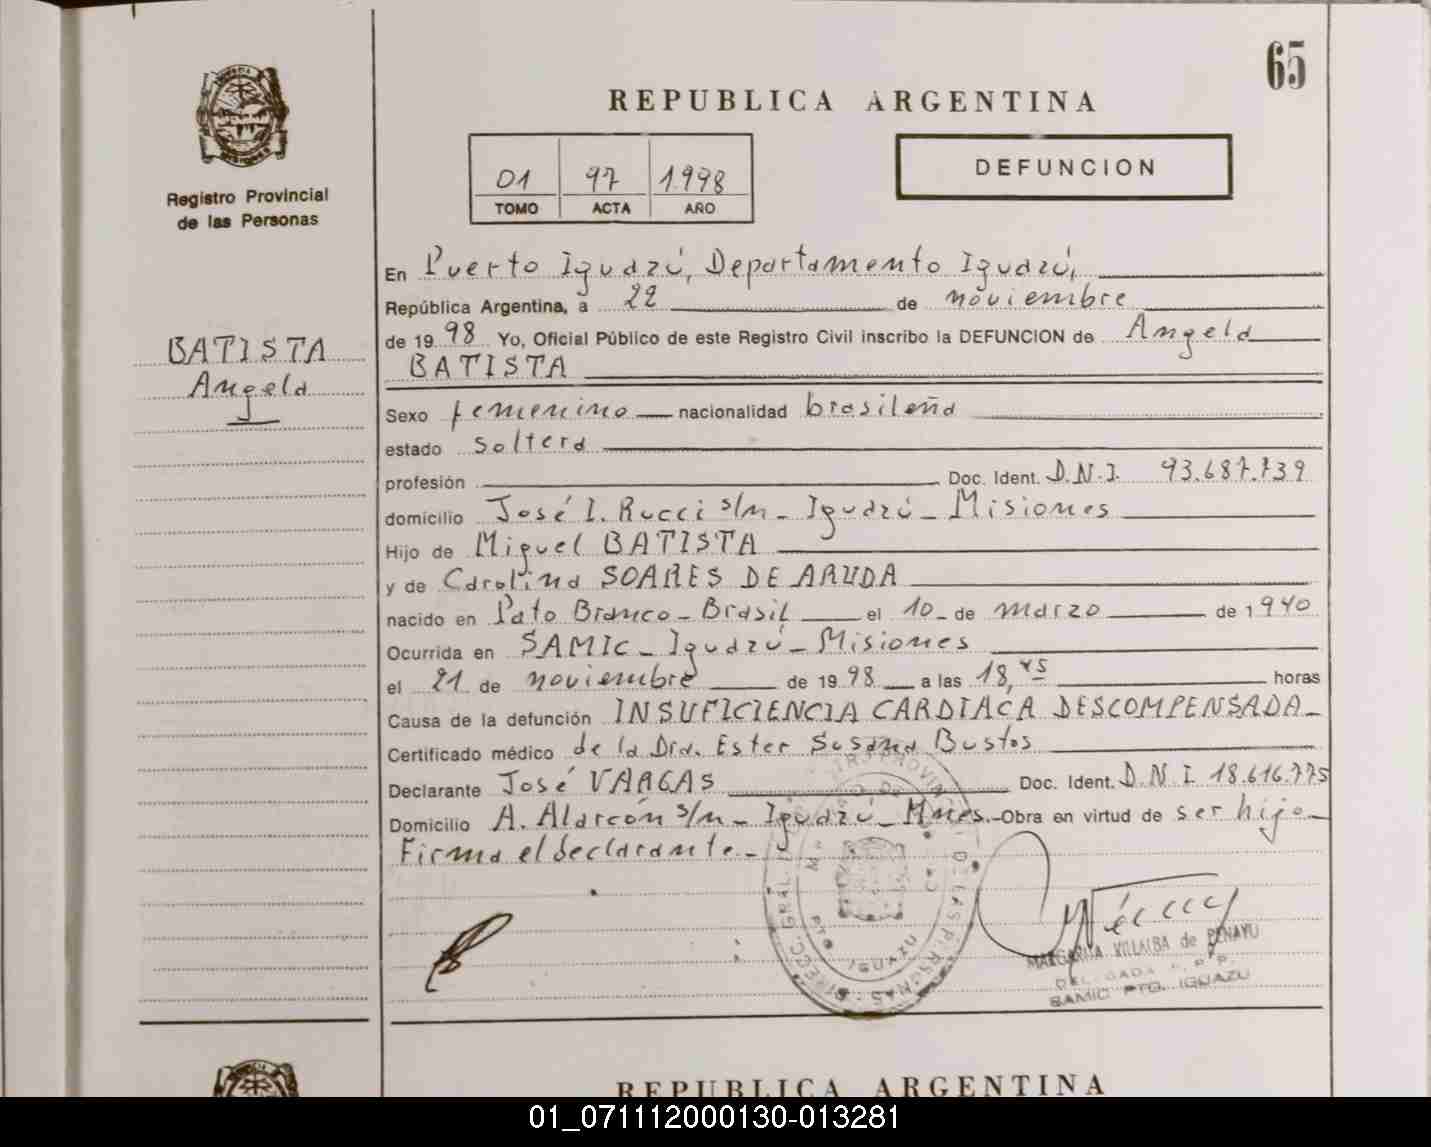 65
REPUBLICA ARGENTINA
Registro Provincial
de las Personas
01 97 1998
TOMO ACTA AÑO
DEFUNCION
BATISTA
Angela
En Puerto Iguazú, Departamento Iguazú,
República Argentina, a 22 de noviembre
de 19 98 Yo, Oficial Público de este Registro Civil inscribo la DEFUNCION de Angela
BATISTA
Sexo femenino nacionalidad brasileña
estado soltera
profesión Doc. Ident. D.N.I. 93.687.739
domicilio José I. Rucci s/n - Iguazú - Misiones
Hijo de Miguel BATISTA
y de Carolina SOARES DE ARUDA
nacido en Pato Branco - Brasil el 10 - de marzo de 1940
Ocurrida en SAMIC - Iguazú - Misiones
el 21 de noviembre de 19 98 a las 18,45 horas
Causa de la defunción INSUFICIENCIA CARDIACA DESCOMPENSADA -
Certificado médico de la Dra. Ester Susana Bustos
Declarante José VARGAS Doc. Ident. D.N.I. 18.616.775
Domicilio A. Alarcón s/n - Iguazú - Mnes. - Obra en virtud de ser hijo -
Firma el declarante. -
MARGARITA VILLALBA de PENAYU
SAMIC PTO. IGUAZU
REPUBLICA ARGENTINA
01_071112000130-013281